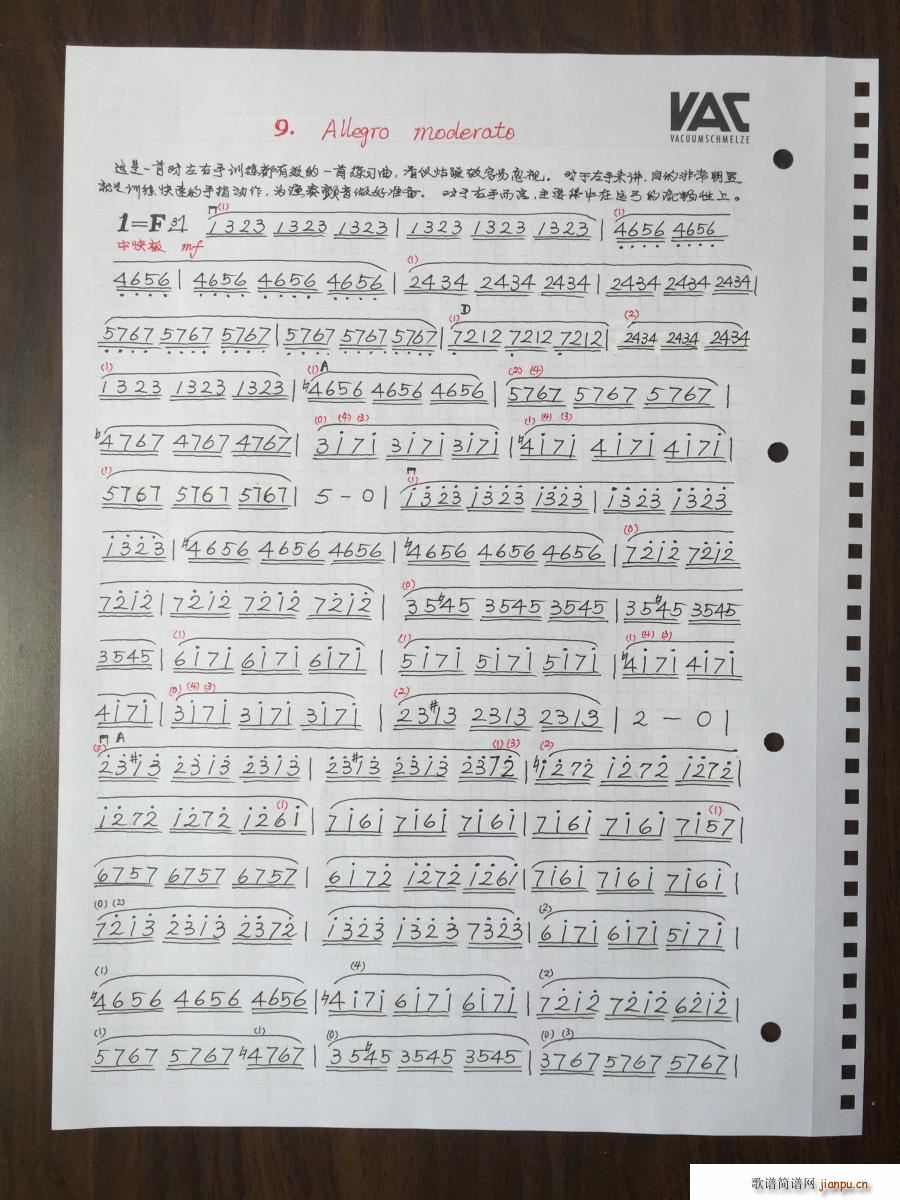 VAC
VACUUMSCHMELZE
9. Allegro moderato
这是一首对左右手训练都有效的一首练习曲，看似枯燥极容易忽视。对于左手来讲，目的非常明显
就是训练快速的手指动作，为演奏颤音做好准备。对于右手而言，主要集中在运弓的流畅性上。
1=F 3/4 (1) 1323 1323 1323 | 1323 1323 1323 | (1) 4656 4656
中快板 mf
4656 | 4656 4656 4656 | (1) 2434 2434 2434 | 2434 2434 2434 |
5767 5767 5767 | 5767 5767 5767 | (1) D 7212 7212 7212 | (2) 2434 2434 2434
(1) 1323 1323 1323 | (1) A ♮4656 4656 4656 | (2) (4) 5767 5767 5767 |
♭4767 4767 4767 | (0) (4) (3) 3i7i 3i7i 3i7i | (1) (4) (3) ♮4i7i 4i7i 4i7i |
(1) 5767 5767 5767 | 5 - 0 | (1) 1323 1323 1323 | 1323 1323
1323 | ♮4656 4656 4656 | ♮4656 4656 4656 | (0) 7212 7212
7212 | 7212 7212 7212 | (0) 35♮45 3545 3545 | 35♮45 3545
3545 | (1) 6i7i 6i7i 6i7i | (1) 5i7i 5i7i 5i7i | (1) (4) (3) ♮4i7i 4i7i
4i7i | (0) (4) (3) 3i7i 3i7i 3i7i | (2) 23#13 2313 2313 | 2 - 0 |
(2) A 23#13 2313 2313 | 23#13 2313 (1) (3) 2372 | (2) ♮1272 1272 1272 |
1272 1272 (1) 126i | 7i6i 7i6i 7i6i | 7i6i 7i6i (1) 7i57 |
6757 6757 6757 | 6i72 1272 1261 | 7i6i 7i6i 7i6i |
(0) (2) 7213 2313 2372 | 1323 1323 7323 | (2) 6i7i 6i7i 5i7i |
(1) ♮4656 4656 4656 | (4) ♮4i7i 6i7i 6i7i | (2) 7212 7212 6212 |
(1) 5767 5767 (1) ♮4767 | (0) 35♮45 3545 3545 | (0) (3) 3767 5767 5767 |
歌谱简谱网 jianpu.cn